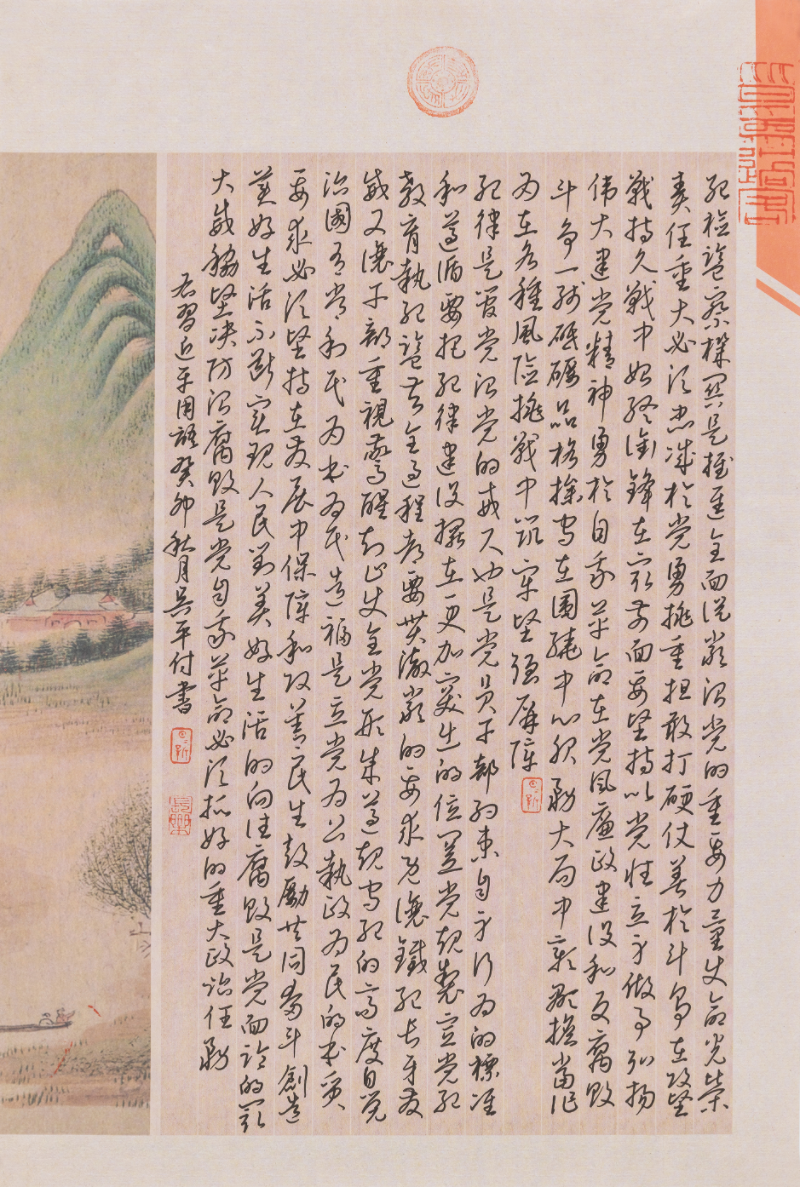 纪检监察機関是推進全面從严治党的重要力量使命光荣
责任重大必须忠诚於党勇挑重担敢打硬仗善於斗争在攻坚
戰持久戰中始终衝鋒在最前面要坚持以党性立身做事弘扬
伟大建党精神勇於自我革命在党风廉政建设和反腐败
斗争一线砥礪品格操守在围繞中心服務大局中彰顯擔當作
为在各種風险挑戰中筑牢坚强屏障
纪律是管党治党的戒尺也是党员干部约束自身行为的標准
和遵循要把纪律建设摆在更加突出的位置党规製定党纪
教育執纪監督全过程都要贯澈嚴的要求既讓鐵纪长牙发
威又讓干部重視警醒知止使全党形成遵规守纪的高度自觉
治國有常利民为本为民造福是立党为公執政为民的本质
要求必须坚持在发展中保障和改善民生鼓勵共同奋斗創造
美好生活不斷实现人民對美好生活的向往腐败是党面临的最
大威脇坚决防治腐败是党自我革命必须抓好的重大政治任務
右習近平用語癸卯秋月吴平付書